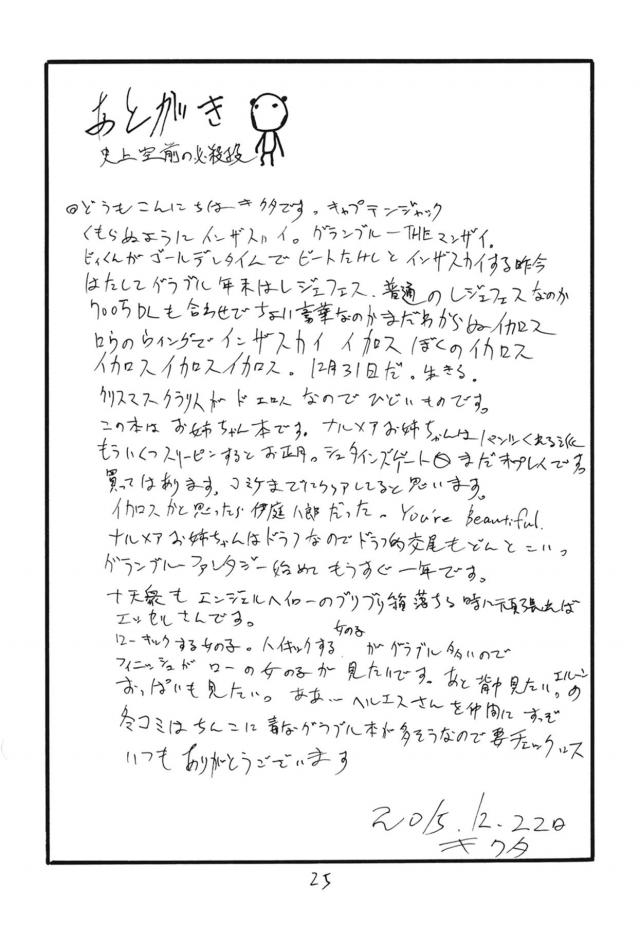 あとがき
史上空前の必殺技
◎どうもこんにちはキクタです。キャプテンジャック
くもらぬようにインザスカイ。グランブルーTHEマンザイ。
ビィくんがゴールデンタイムでビートたけしとインザスカイする昨今
はたしてグラブル年末はレジェフェス、普通のレジェフェスなのか
700万DLも合わせでちょい豪華なのかまだわからぬイカロス
ロウのウィングでインザスカイ イカロス ぼくのイカロス
イカロスイカロスイカロス。12月31日だ。生きる。
クリスマスクラリスがドエロスなのでひどいものです。
この本はお姉ちゃん本です。ナルメアお姉ちゃんはパンツくれる派
もういくつスリーピンするとお正月。シュタインズゲート0まだ未プレイです
買ってはあります。コミケまでにクリアしてると思います。
イカロスかと思ったら伊庭八郎だった。You're Beautiful.
ナルメアお姉ちゃんはドラフなのでドラフ的交尾もどんとこいっ
グランブルーファンタジー始めてもうすぐ一年です。
十天衆もエンジェルヘイローのブリブリ箱落ちる時に頑張れば
エッセルさんです。
ローキックする女の子。ハイキックする女の子がグラブル多いので
フィニッシュがローの女の子が見たいです。あと背中見たい。エルーンの
おっぱいも見たいっ ああ…ヘルエスさんを仲間にすっぞ
冬コミはちんこに毒なグラブル本が多そうなので要チェックロス
いつもありがとうございます
2015.12.22日
キクタ
25